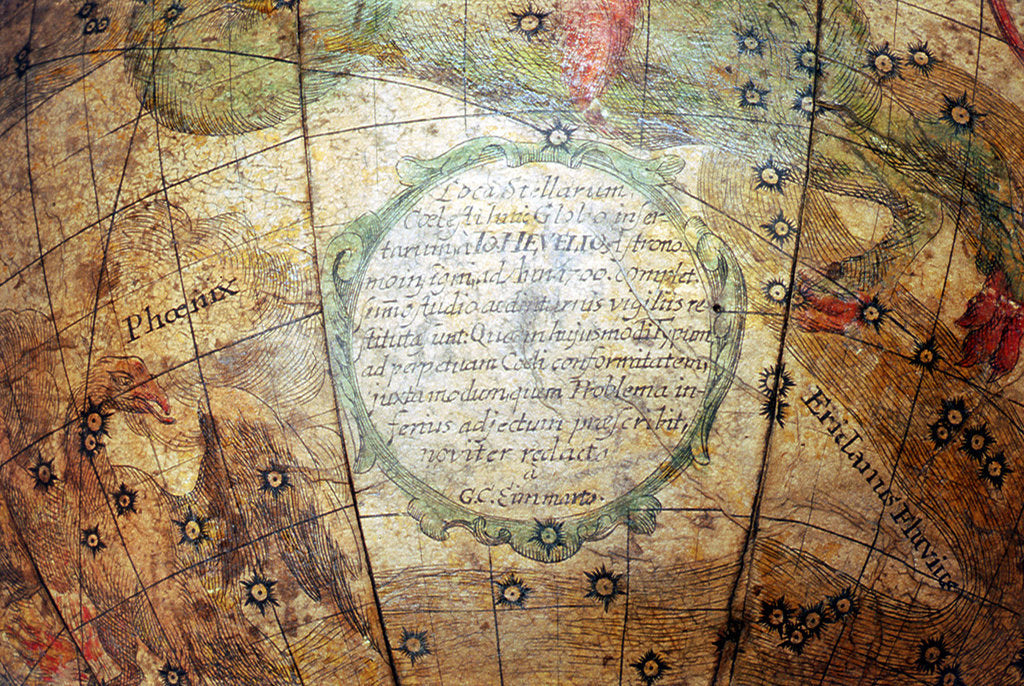 Loca Stellarum
Cœlesti huic Globo inser-
tarum a IO. HEVELIO, Astrono
mo ad Ann. 1700. complet.
studio ac diuturnis vigiliis re-
stituta sunt: Quæ in hujusmodi typum
ad perpetuam Cœli conformitatem,
juxta modum quem Problema in-
ferius adjectum præscribit,
noviter redacta
à
G.C. Eimmarto.
Phœnix
Eridanus Fluvius